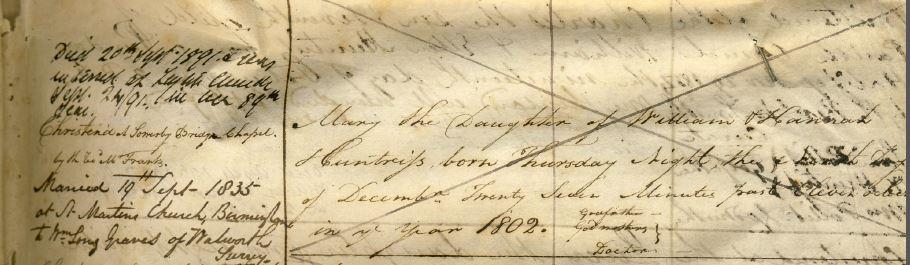 Died 20th Sept 1891. & was
interred at Leigh
Sept. 24/91. in her 89th
Year.
Christend at Sowerby Bridge Chapel.
by the Revd Mr Frank.
Married 19th Sept- 1835
at St. Martins Church, Birmingham
to Wm Long Graves of Walworth
Surrey.
Mary the Daughter of William & Hannah
Huntriss born Thursday Night the Day
of Decembr. Twenty Seven Minutes past Eleven
in ye Year 1802.
Godfather
Godmothers
Doctor